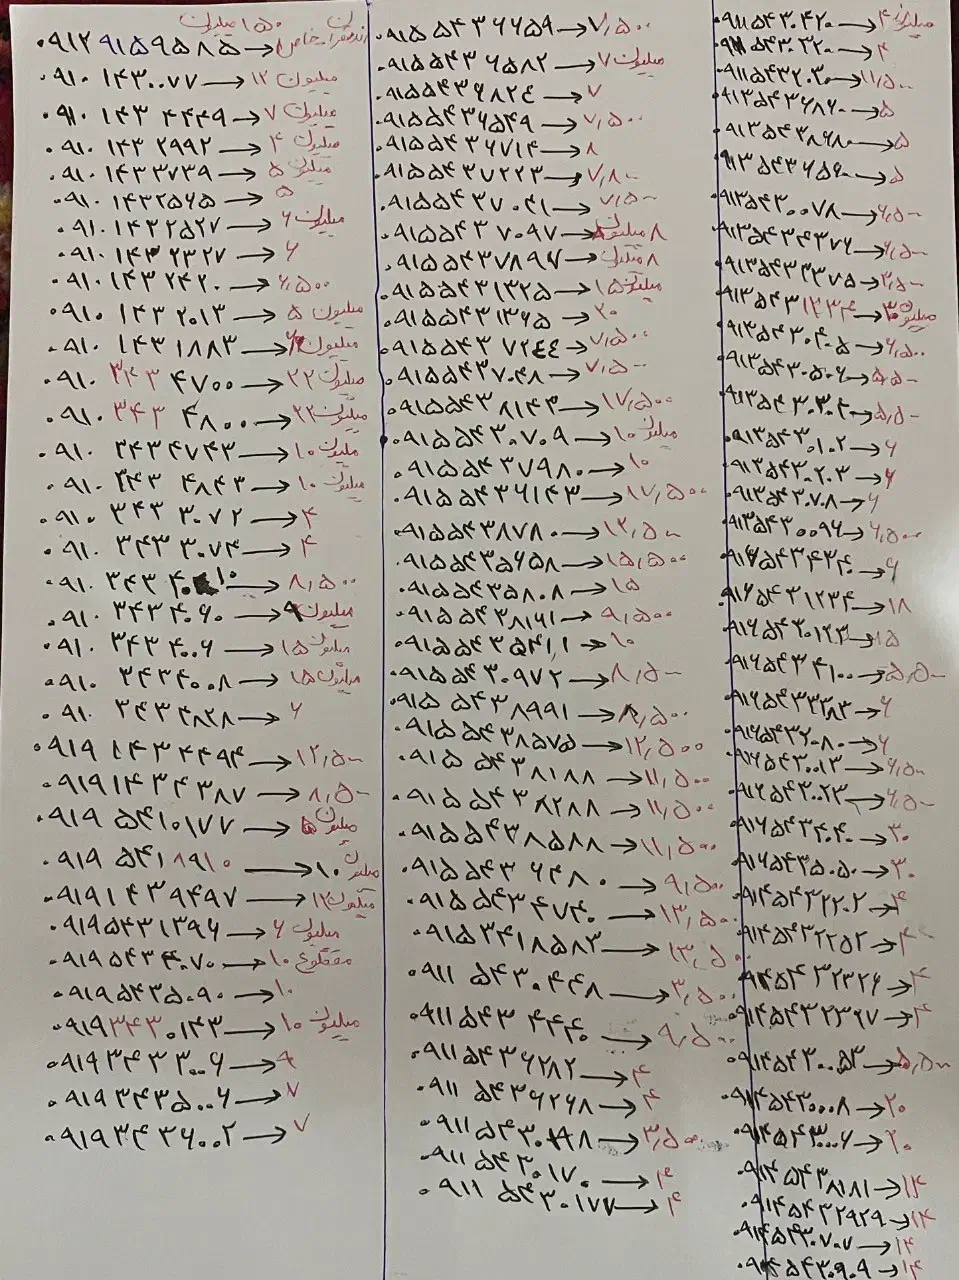 ۱۵۰ میلیون
۰۹۱۲ ۹۱۵۹۵۸۵
۰۹۱۰ ۱۴۳۰۰۷۷ → ۱۲ میلیون
۰۹۱۰ ۱۴۳ ۴۴۴۹ → ۷ میلیون
۰۹۱۰ ۱۴۳ ۲۹۹۲ → ۴ میلیون
۰۹۱۰ ۱۴۳۳۷۳۹ → ۵ میلیون
۰۹۱۰ ۱۴۳۲۵۶۵ → ۵
۰۹۱۰ ۱۴۳۲۵۲۷ → ۶ میلیون
۰۹۱۰ ۱۴۳ ۲۳۲۷ → ۶
۰۹۱۰ ۱۴۳ ۲۴۲۰ → ۶٫۵۰۰
۰۹۱۰ ۱۴۳ ۲۰۱۳ → ۵ میلیون
۰۹۱۰ ۱۴۳ ۱۸۸۳ → میلیون
۰۹۱۰ ۳۴۳ ۴۷۰۰ → ۲۲ میلیون
۰۹۱۰ ۳۴۳ ۴۸۰۰ → ۲۲ میلیون
۰۹۱۰ ۳۴۳ ۴۷۴۳ → ۱۰ میلیون
۰۹۱۰ ۳۴۳ ۴۸۴۳ → ۱۰ میلیون
۰۹۱۰ ۳۴۳ ۳۰۷۲ → ۴
۰۹۱۰ ۳۴۳ ۳۰۷۴ → ۴
۰۹۱۰ ۳۴۳ ۴۰۱۰ → ۸٫۵۰۰
۰۹۱۰ ۳۴۳ ۴۰۶۰ → ۹ میلیون
۰۹۱۰ ۳۴۳ ۴۰۰۶ → ۱۵ میلیون
۰۹۱۰ ۳۴۳۴۰۰۸ → ۱۵ میلیون
۰۹۱۰ ۳۴۳ ۴۸۲۸ → ۶
۰۹۱۹ ۱۴۳ ۴۴۹۴ → ۱۲٫۵۰۰
۰۹۱۹ ۱۴۳ ۴۳۸۷ → ۸٫۵۰۰
۰۹۱۹ ۵۴۱۰۱۷۷ → ۱۵ میلیون
۰۹۱۹ ۵۴۱۸۹۱۰ → ۱۰ میلیون
۰۹۱۹۱۴۳۹۴۹۷ → ۱۲ میلیون
۰۹۱۹۵۴۳۱۳۹۶ → ۶ میلیون
۰۹۱۹۵۴۳۴۰۷۰ → ۱۰
۰۹۱۹۵۴۳۵۰۹۰ → ۱۰
۰۹۱۹۳۴۳۰۱۴۳ → ۱۰ میلیون
۰۹۱۹۳۴۳۳۰۰۶ → ۹
۰۹۱۹۳۴۳۵۰۰۶ → ۷
۰۹۱۹۳۴۳۶۰۰۲ → ۷
۰۹۱۵ ۵۴۳۶۶۵۹ → ۷٫۵۰۰
۰۹۱۵۵۴۳۶۵۸۲ → ۷ میلیون
۰۹۱۵۵۴۳۶۸۲۴ → ۷
۰۹۱۵۵۴۳۶۵۴۹ → ۷٫۵۰۰
۰۹۱۵۵۴۳۶۷۱۴ → ۸
۰۹۱۵۵۴۳۷۲۲۳ → ۷٫۸۰۰
۰۹۱۵۵۴۳۷۰۴۱ → ۷٫۵۰۰
۰۹۱۵۵۴۳۷۰۹۷ → ۸ میلیون
۰۹۱۵۵۴۳۷۸۹۷ → ۸ میلیون
۰۹۱۵۵۴۳۱۳۲۵ → ۱۵ میلیون
۰۹۱۵۵۴۳۱۳۶۵ → ۲۰
۰۹۱۵۵۴۳۷۲۴۴ → ۷٫۵۰۰
۰۹۱۵۵۴۳۷۰۴۸ → ۷٫۵۰۰
۰۹۱۵۵۴۳۸۱۴۳ → ۱۷٫۵۰۰
۰۹۱۵۵۴۳۰۷۰۹ → ۱۰ میلیون
۰۹۱۵۵۴۳۷۹۸۰ → ۱۰
۰۹۱۵۵۴۳۶۱۴۳ → ۱۷٫۵۰۰
۰۹۱۵۵۴۳۸۷۸۰ → ۱۲٫۵۰۰
۰۹۱۵۵۴۳۵۶۵۸ → ۱۵٫۵۰۰
۰۹۱۵۵۴۳۵۸۰۸ → ۱۵
۰۹۱۵۵۴۳۸۱۶۱ → ۹٫۵۰۰
۰۹۱۵۵۴۳۵۴۱۰۱ → ۱۰
۰۹۱۵۵۴۳۰۹۷۲ → ۸٫۵۰۰
۰۹۱۵ ۵۴۳۸۹۹۱ → ۸٫۵۰۰
۰۹۱۵۵۴۳۸۵۷۵ → ۱۲٫۵۰۰
۰۹۱۵ ۵۴۳۸۱۸۸ → ۱۱٫۵۰۰
۰۹۱۵۵۴۳۸۲۸۸ → ۱۱٫۵۰۰
۰۹۱۵۵۴۳۸۵۸۸ → ۱۱٫۵۰۰
۰۹۱۵۵۴۳ ۶۴۸۰ → ۹٫۵۰۰
۰۹۱۵۵۴۳۴۷۴۰ → ۱۳٫۵۰۰
۰۹۱۵۳۴۱۸۵۸۳ → ۱۳٫۵۰۰
۰۹۱۱ ۵۴۳۰۴۴۸ → ۳٫۵۰۰
۰۹۱۱ ۵۴۳ ۴۴۴۰ → ۹٫۵۰۰
۰۹۱۱ ۵۴۳۶۲۸۲ → ۴
۰۹۱۱ ۵۴۳۶۲۶۸ → ۴
۰۹۱۱ ۵۴۳۰ → ۳٫۵۰۰
۰۹۱۱ ۵۴۳۰۱۷۰ → ۴
۰۹۱۱ ۵۴۳۰۱۷۷ → ۴
۰۹۱۱۵۴۳۰۴۲۰ → ۴ میلیون
۰۹۱۱۵۴۳۰۳۲۰ → ۴
۰۹۱۱۵۴۳۲۰۳۰ → ۱۱٫۵۰۰
۰۹۱۳۵۴۳۶۸۶۰ → ۵
۰۹۱۳۵۴۳۸۶۸۰ → ۵
۰۹۱۳۵۴۳۶۵۶۰ → ۵
۰۹۱۳۵۴۳۰۰۷۸ → ۶٫۵۰۰
۰۹۱۳۵۴۳۴۳۷۶ → ۶٫۵۰۰
۰۹۱۳۵۴۳۳۳۷۵ → ۶٫۵۰۰
۰۹۱۳۵۴۳۱۲۳۴ → ۳۰ میلیون
۰۹۱۳۵۴۳۰۴۰۵ → ۶٫۵۰۰
۰۹۱۳۵۴۳۰۵۰۶ → ۵٫۵۰۰
۰۹۱۳۵۴۳۰۳۰۴ → ۵٫۵۰۰
۰۹۱۳۵۴۳۰۱۰۲ → ۶
۰۹۱۳۵۴۳۰۲۰۳ → ۶
۰۹۱۳۵۴۳۰۷۰۸ → ۶
۰۹۱۳۵۴۳۰۰۹۶ → ۶٫۵۰۰
۰۹۱۶۵۴۳۴۳۴۰ → ۶
۰۹۱۶۵۴۳۱۲۳۴ → ۱۸
۰۹۱۶۵۴۳۰۱۲۳ → ۱۵
۰۹۱۶۵۴۳۴۱۰۰ → ۵٫۵۰۰
۰۹۱۶۵۴۳۳۳۸۳ → ۶
۰۹۱۶۵۴۳۲۰۸۰ → ۶
۰۹۱۶۵۴۳۰۰۱۳ → ۶٫۵۰۰
۰۹۱۶۵۴۳۰۰۲۳ → ۶٫۵۰۰
۰۹۱۶۵۴۳۴۰۴۰ → ۳۰
۰۹۱۶۵۴۳۵۰۵۰ → ۳۰
۰۹۱۴۵۴۳۲۲۰۲ → ۴
۰۹۱۴۵۴۳۲۲۵۲ → ۴
۰۹۱۴۵۴۳۲۳۲۶ → ۴
۰۹۱۴۵۴۳۲۳۲۷ → ۴
۰۹۱۴۵۴۳۰۰۵۳ → ۵٫۵۰۰
۰۹۱۴۵۴۳۰۰۰۸ → ۲۰
۰۹۱۴۵۴۳۰۰۰۶ → ۲۰
۰۹۱۴۵۴۳۸۱۸۱ → ۱۴
۰۹۱۴۵۴۳۲۹۲۹ → ۱۴
۰۹۱۴۵۴۳۰۷۰۷ → ۱۴
۰۹۱۴۵۴۳۰۹۰۹ → ۱۴